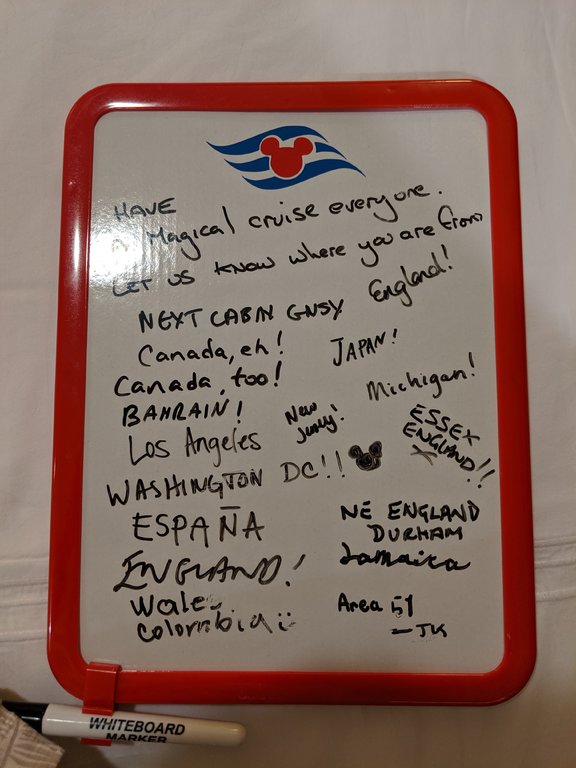 HAVE
A Magical cruise everyone.
LET US KNOW where you are from
England!
NEXT CABIN GNSY
Canada, eh!
JAPAN!
Canada, too!
Michigan!
BAHRAIN!
New Jersey!
ESSEX ENGLAND!!
Los Angeles
WASHINGTON DC!!
ESPAÑA
NE ENGLAND
DURHAM
ENGLAND!
Jamaica
Wales
Area 51
Colombia :)
—JK
WHITEBOARD
MARKER